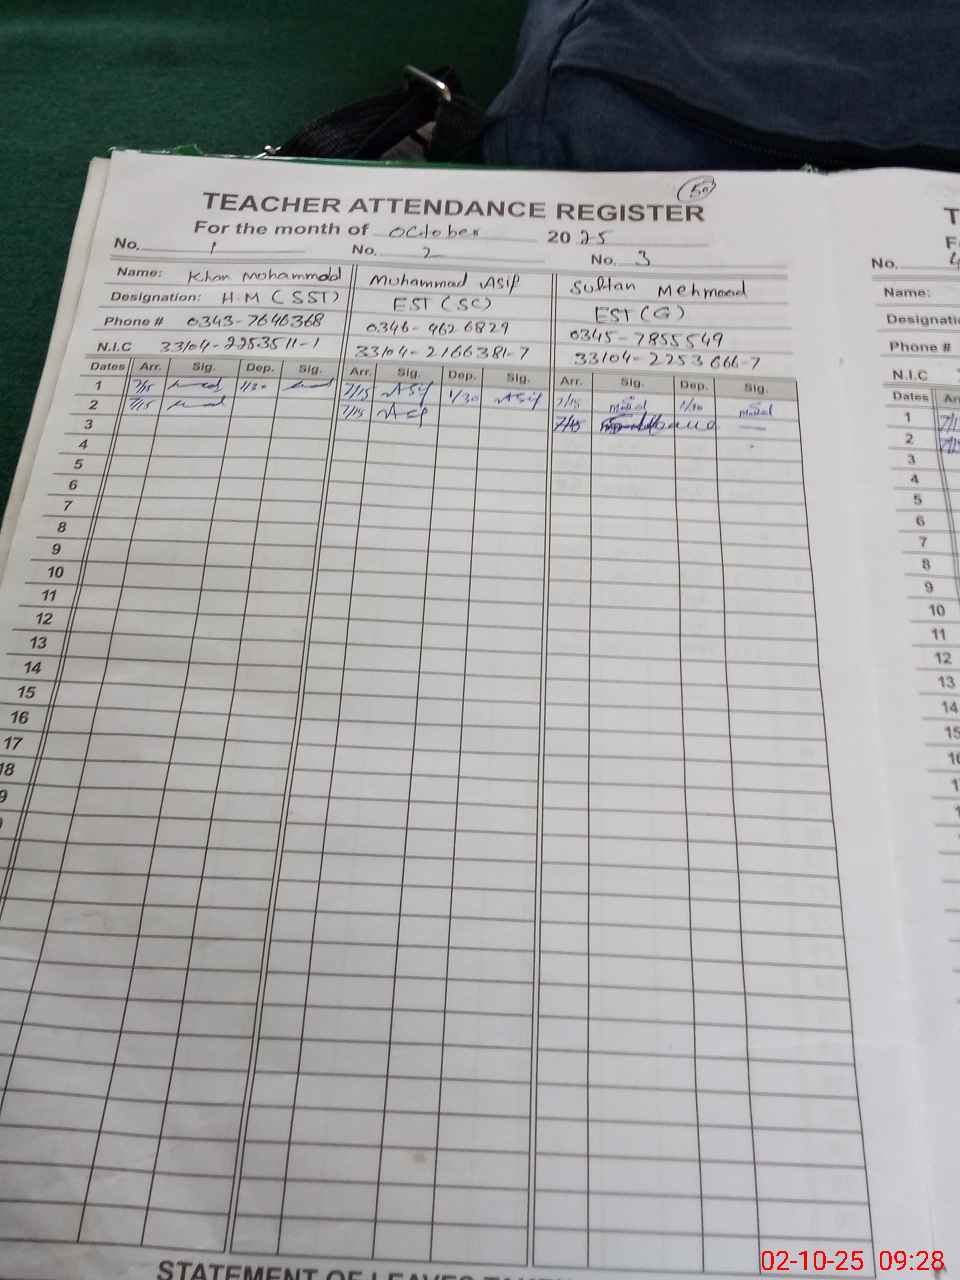 50
TEACHER ATTENDANCE REGISTER
For the month of October 2025
No. 1 No. 2 No. 3
Name: Khan Mohammad Muhammad Asif Sultan Mehmood
Designation: H.M (SST) EST (SC) EST (G)
Phone # 0343-7646368 0346-4626829 0345-7855549
N.I.C 33104-2253511-1 33104-2166381-7 33104-2253666-7
Dates Arr. Sig. Dep. Sig. Arr. Sig. Dep. Sig. Arr. Sig. Dep. Sig.
1 7/15 1/30 7/15 Asif 1/30 Asif 7/15 1/30
2 7/15 7/15 Asif 7/15
3
4
5
6
7
8
9
10
11
12
13
14
15
16
17
18
9
T
F
No. 4
Name:
Designati
Phone #
N.I.C
Dates Arr
1 7/1
2
3
4
5
6
7
8
9
10
11
12
13
14
15
STATEMENT OF LEAVES
02-10-25 09:28